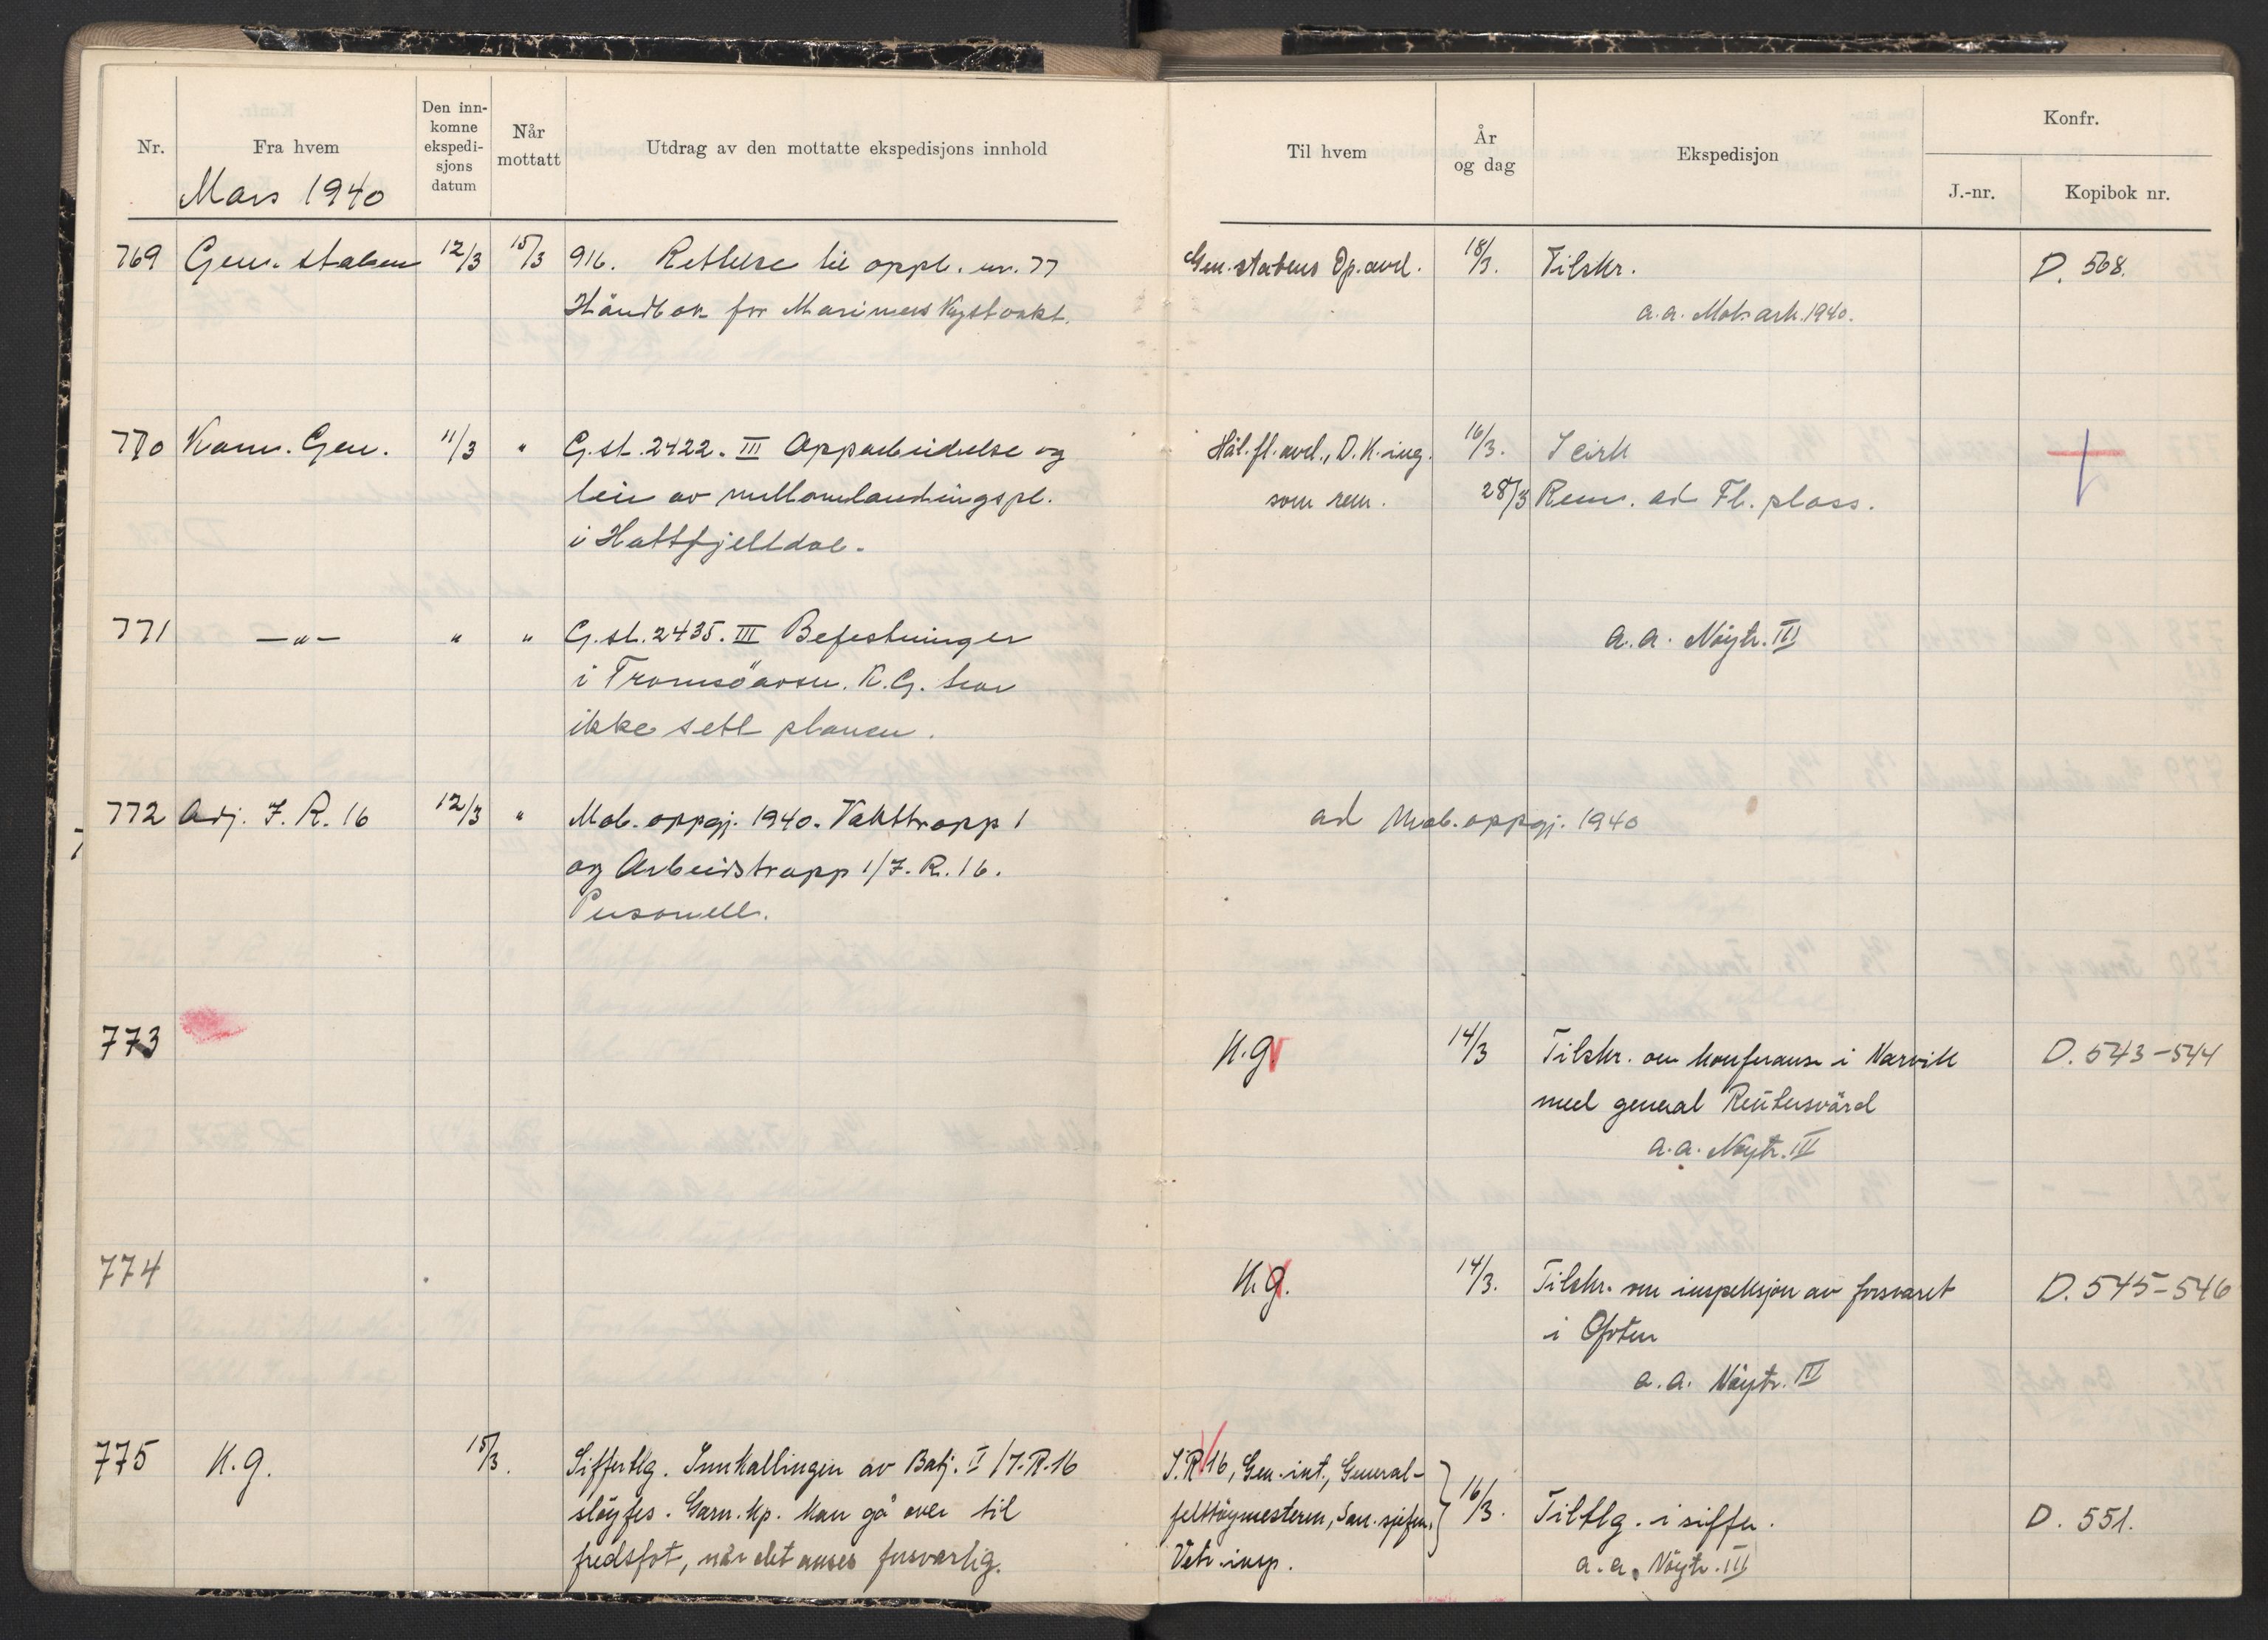 Nr.
Fra hvem
Den inn-
komne
ekspedi-
sjons
datum
Når
mottatt
Utdrag av den mottatte ekspedisjons innhold
Til hvem
År
og dag
Ekspedisjon
Konfr.
J.-nr.
Kopibok nr.
Mars 1940
769 Gen. staben 12/3 15/3 916. Rettelse til oppl. nr. 77 Gen.stabens Op.avd. 18/3. Tilskr. D. 568.
Håndbok for Marinens Kystvakt. a.a. Mob.ark.1940.
770 Kom. Gen. 11/3 " G.st. 2422. III Opparbeidelse og Hål.fl.avd., D.K.ing. 16/3. I cirk
leie av mellomlandingspl. som rem. 28/3 Rem. ad Fl. plass.
i Hattfjelldal.
771 —"— " " G.st. 2435. III Befestninger a.a. Nöytr. III
i Tromsöavsn. K.G. har
ikke sett planen.
772 Adj. I.R. 16 12/3 " Mob. oppgj. 1940. Vakttropp 1 ad Mob. oppgj. 1940
og Arbeidstropp 1/I.R. 16.
Personell.
773 K.G. 14/3 Tilskr. om konferanse i Narvik D. 543-544
med general Reutersvärd
a.a. Nöytr. IV
774 K.G. 14/3. Tilskr. om inspeksjon av forsvaret D. 545-546
i Ofoten
a.a. Nöytr. IV
775 K.G. 15/3. Siffertlg. Innkallingen av Batj. II/I.R.16 I.R.16, Gen.int., General-
slöyfes. Garn.kp. kan gå over til felttöymesteren, San.sjefen, 16/3. Tiltlg. i siffer. D. 551.
fredsfot, når det anses forsvarlig. Vet.insp. a.a. Nöytr. III